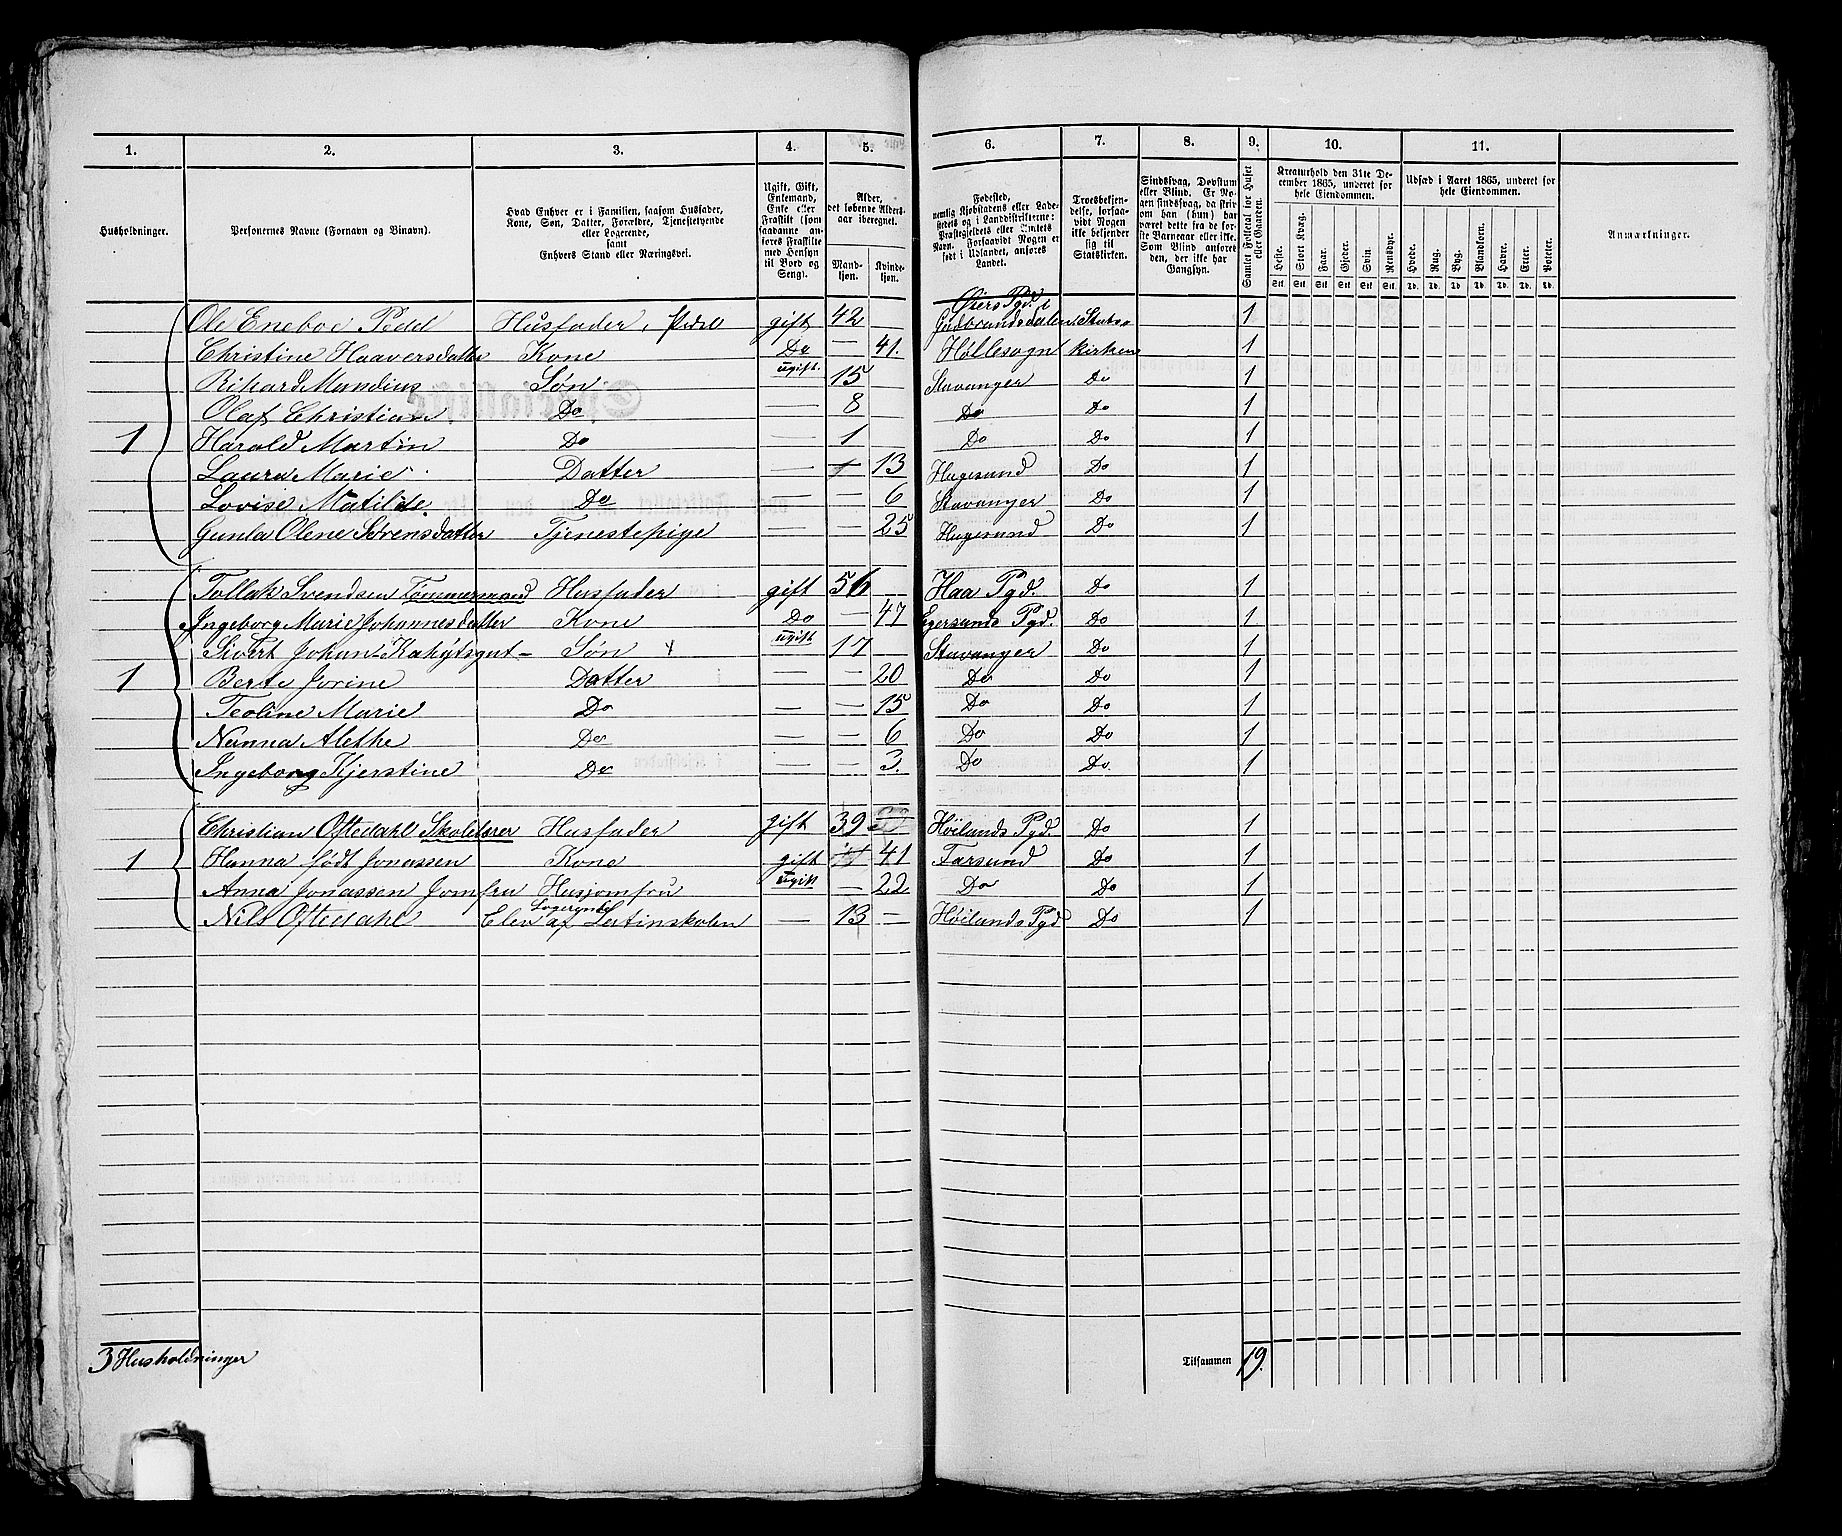 1. 2. 3. 4. 5. 6. 7. 8. 9. 10. 11.
Husholdninger.
Personernes Navne (Fornavn og Binavn).
Hvad Enhver er i Familien, saasom Husfader,
Kone, Søn, Datter, Forældre, Tjenestetyende
eller Logerende,
samt
Enhvers Stand eller Næringsvei.
Ugift, Gift,
Enkemand,
Enke eller
Fraskilt (som
saadanne an-
føres Fraskilte
med Hensyn
til Bord og
Seng).
Alder,
det løbende Alders-
aar iberegnet.
Mand-
kjøn.
Kvinde-
kjøn.
Fødested,
nemlig Kjøbstadens eller Lade-
stedets og i Landdistrikterne:
Præstegjeldets eller Amtets
Navn. Forsaavidt Nogen er
født i Udlandet, anføres
Landet.
Troesbekjen-
delse, forsaa-
vidt Nogen
ikke bekjender
sig til
Statskirken.
Sindssvag, Døvstum
eller Blind. Er No-
gen sindssvag, da skriv
om han (hun) har
været dette fra de før-
ste Barneaar eller ikke.
Som Blind anføres
den, der ikke har
Gangsyn.
Samlet Folketal for Huset
eller Gaarden.
Kreaturhold den 31te De-
cember 1865, underet for
hele Eiendommen.
Heste. Stort Kvæg. Faar. Gjeder. Svin. Rensdyr.
Stk. Stk. Stk. Stk. Stk. Stk.
Udsæd i Aaret 1865, underet for
hele Eiendommen.
Hvede. Rug. Byg. Blandkorn. Havre. Erter. Poteter.
Td. Td. Td. Td. Td. Td. Td.
Anmærkninger.
Øiers Pgd. i
Ole Eneboe Husfader, gift 42 Gudbrandsdalen Stats- 1
Christine Haaversdatter Kone Do — 41. Høllesogn kirken 1
Rikard Mandius Søn. ugift. 15 Stavanger Do 1
Olaf Christian Do — 8 Do Do 1
1 Harald Martin Do — 1 Do Do 1
Laura Marie Datter — — 13 Hugesund Do 1
Lovise Matilde. Do — — 6 Stavanger Do 1
Gunla Olene Sørensdatter Tjenestepige — — 25 Hugesund Do 1
Tollak Svendsen Tømmermand Husfader gift 56 Haa Pgd. Do 1
Ingeborg Marie Johannesdatter Kone Do — 47 Egersunds Pgd. Do 1
Sivert Johan Kahytsgut Søn ugift 17 Stavanger Do 1
1 Berte Jorine Datter — — 20 Do Do 1
Teoline Marie Do — — 15 Do Do 1
Nanna Alethe Do — — 6 Do Do 1
Ingeborg Kjerstine Do — — 3. Do Do. 1
Christian Oftedahl Skolelærer Husfader gift 39 Høilands Pgd. Do 1
1 Hanna født Jonassen Kone gift 41 Farsund Do 1
Anna Jonassen Jomfru Husjomfru ugift — 22 Do Do 1
Logerende
Nils Oftedahl Elev af Latinskolen — 13 — Høilands Pgd Do 1
3 Husholdninger
Tilsammen 19.